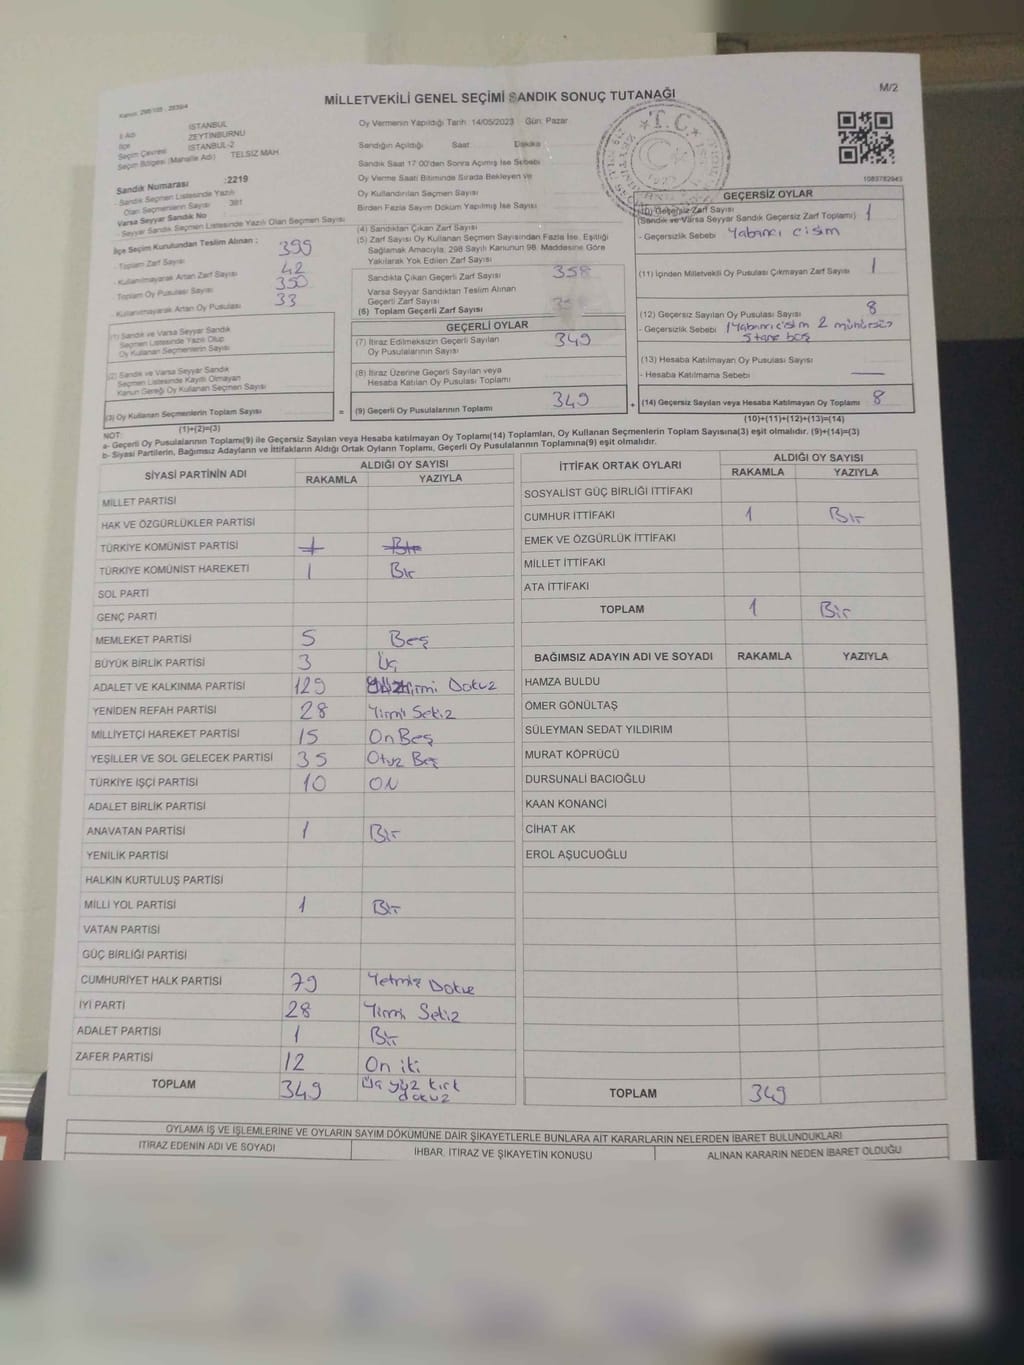 Kanun: 298/105 - 2839/4
MİLLETVEKİLİ GENEL SEÇİMİ SANDIK SONUÇ TUTANAĞI
M/2
İl Adı İSTANBUL
İlçe ZEYTİNBURNU
Seçim Çevresi İSTANBUL-2
Seçim Bölgesi (Mahalle Adı) TELSİZ MAH.
Sandık Numarası :2219
- Sandık Seçmen Listesinde Yazılı
Olan Seçmenlerin Sayısı 381
Varsa Seyyar Sandık No
- Seyyar Sandık Seçmen Listesinde Yazılı Olan Seçmen Sayısı
İlçe Seçim Kurulundan Teslim Alınan :
- Toplam Zarf Sayısı 399
- Kullanılmayarak Artan Zarf Sayısı 42
Toplam Oy Pusulası Sayısı 350
- Kullanılmayarak Artan Oy Pusulası 33
(1) Sandık ve Varsa Seyyar Sandık
Seçmen Listesinde Yazılı Olup
Oy Kullanan Seçmenlerin Sayısı
(2) Sandık ve Varsa Seyyar Sandık
Seçmen Listesinde Kayıtlı Olmayan
Kanun Gereği Oy Kullanan Seçmen Sayısı
(3) Oy Kullanan Seçmenlerin Toplam Sayısı
(1)+(2)=(3)
Oy Vermenin Yapıldığı Tarih :14/05/2023 Gün: Pazar
Sandığın Açıldığı Saat Dakika
Sandık Saat 17:00'den Sonra Açılmış İse Sebebi
Oy Verme Saati Bitiminde Sırada Bekleyen ve
Oy Kullandırılan Seçmen Sayısı
Birden Fazla Sayım Döküm Yapılmış İse Sayısı
(4) Sandıktan Çıkan Zarf Sayısı
(5) Zarf Sayısı Oy Kullanan Seçmen Sayısından Fazla İse, Eşitliği
Sağlamak Amacıyla; 298 Sayılı Kanunun 98. Maddesine Göre
Yakılarak Yok Edilen Zarf Sayısı
Sandıkta Çıkan Geçerli Zarf Sayısı 358
Varsa Seyyar Sandıktan Teslim Alınan
Geçerli Zarf Sayısı
(6) Toplam Geçerli Zarf Sayısı
GEÇERLİ OYLAR
(7) İtiraz Edilmeksizin Geçerli Sayılan
Oy Pusulalarının Sayısı 349
(8) İtiraz Üzerine Geçerli Sayılan veya
Hesaba Katılan Oy Pusulası Toplamı
= (9) Geçerli Oy Pusulalarının Toplamı 349
T.C.
1083782943
GEÇERSİZ OYLAR
(10) Geçersiz Zarf Sayısı
(Sandık ve Varsa Seyyar Sandık Geçersiz Zarf Toplamı) 1
- Geçersizlik Sebebi Yabancı cisim
(11) İçinden Milletvekili Oy Pusulası Çıkmayan Zarf Sayısı 1
(12) Geçersiz Sayılan Oy Pusulası Sayısı 8
- Geçersizlik Sebebi 1 Yabancı cisim 2 mühürsüz
5 tane boş
(13) Hesaba Katılmayan Oy Pusulası Sayısı
- Hesaba Katılmama Sebebi
+ (14) Geçersiz Sayılan veya Hesaba Katılmayan Oy Toplamı 8
(10)+(11)+(12)+(13)=(14)
NOT:
a- Geçerli Oy Pusulalarının Toplamı(9) ile Geçersiz Sayılan veya Hesaba katılmayan Oy Toplamı(14) Toplamları, Oy Kullanan Seçmenlerin Toplam Sayısına(3) eşit olmalıdır. (9)+(14)=(3)
b- Siyasi Partilerin, Bağımsız Adayların ve İttifakların Aldığı Ortak Oyların Toplamı, Geçerli Oy Pusulalarının Toplamına(9) eşit olmalıdır.
SİYASİ PARTİNİN ADI ALDIĞI OY SAYISI
RAKAMLA YAZIYLA
MİLLET PARTİSİ
HAK VE ÖZGÜRLÜKLER PARTİSİ
TÜRKİYE KOMÜNİST PARTİSİ 1 Bir
TÜRKİYE KOMÜNİST HAREKETİ 1 Bir
SOL PARTİ
GENÇ PARTİ
MEMLEKET PARTİSİ 5 Beş
BÜYÜK BİRLİK PARTİSİ 3 Üç
ADALET VE KALKINMA PARTİSİ 129 Dokuz
YENİDEN REFAH PARTİSİ 28 Yirmi Sekiz
MİLLİYETÇİ HAREKET PARTİSİ 15 On Beş
YEŞİLLER VE SOL GELECEK PARTİSİ 35 Otuz Beş
TÜRKİYE İŞÇİ PARTİSİ 10 ON
ADALET BİRLİK PARTİSİ
ANAVATAN PARTİSİ 1 Bir
YENİLİK PARTİSİ
HALKIN KURTULUŞ PARTİSİ
MİLLİ YOL PARTİSİ 1 Bir
VATAN PARTİSİ
GÜÇ BİRLİĞİ PARTİSİ
CUMHURİYET HALK PARTİSİ 79 Yetmiş Dokuz
İYİ PARTİ 28 Yirmi Sekiz
ADALET PARTİSİ 1 Bir
ZAFER PARTİSİ 12 On iki
TOPLAM 349 Üç yüz kırk
dokuz
İTTİFAK ORTAK OYLARI ALDIĞI OY SAYISI
RAKAMLA YAZIYLA
SOSYALİST GÜÇ BİRLİĞİ İTTİFAKI
CUMHUR İTTİFAKI 1 Bir
EMEK VE ÖZGÜRLÜK İTTİFAKI
MİLLET İTTİFAKI
ATA İTTİFAKI
TOPLAM 1 Bir
BAĞIMSIZ ADAYIN ADI VE SOYADI RAKAMLA YAZIYLA
HAMZA BULDU
ÖMER GÖNÜLTAŞ
SÜLEYMAN SEDAT YILDIRIM
MURAT KÖPRÜCÜ
DURSUNALİ BACIOĞLU
KAAN KONANCİ
CİHAT AK
EROL AŞUCUOĞLU
TOPLAM 349
OYLAMA İŞ VE İŞLEMLERİNE VE OYLARIN SAYIM DÖKÜMÜNE DAİR ŞİKAYETLERLE BUNLARA AİT KARARLARIN NELERDEN İBARET BULUNDUKLARI
İTİRAZ EDENİN ADI VE SOYADI İHBAR, İTİRAZ VE ŞİKAYETİN KONUSU ALINAN KARARIN NEDEN İBARET OLDUĞU